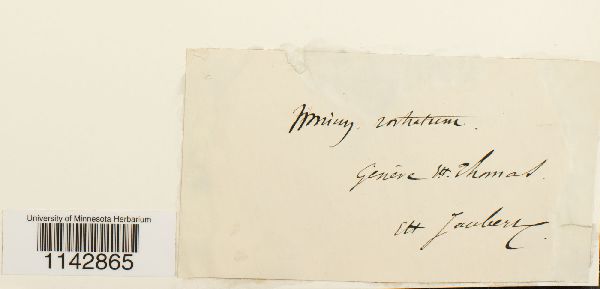 Mnium rostratum.
Genève H. Thomas.
H Jaubert.
University of Minnesota Herbarium
1142865